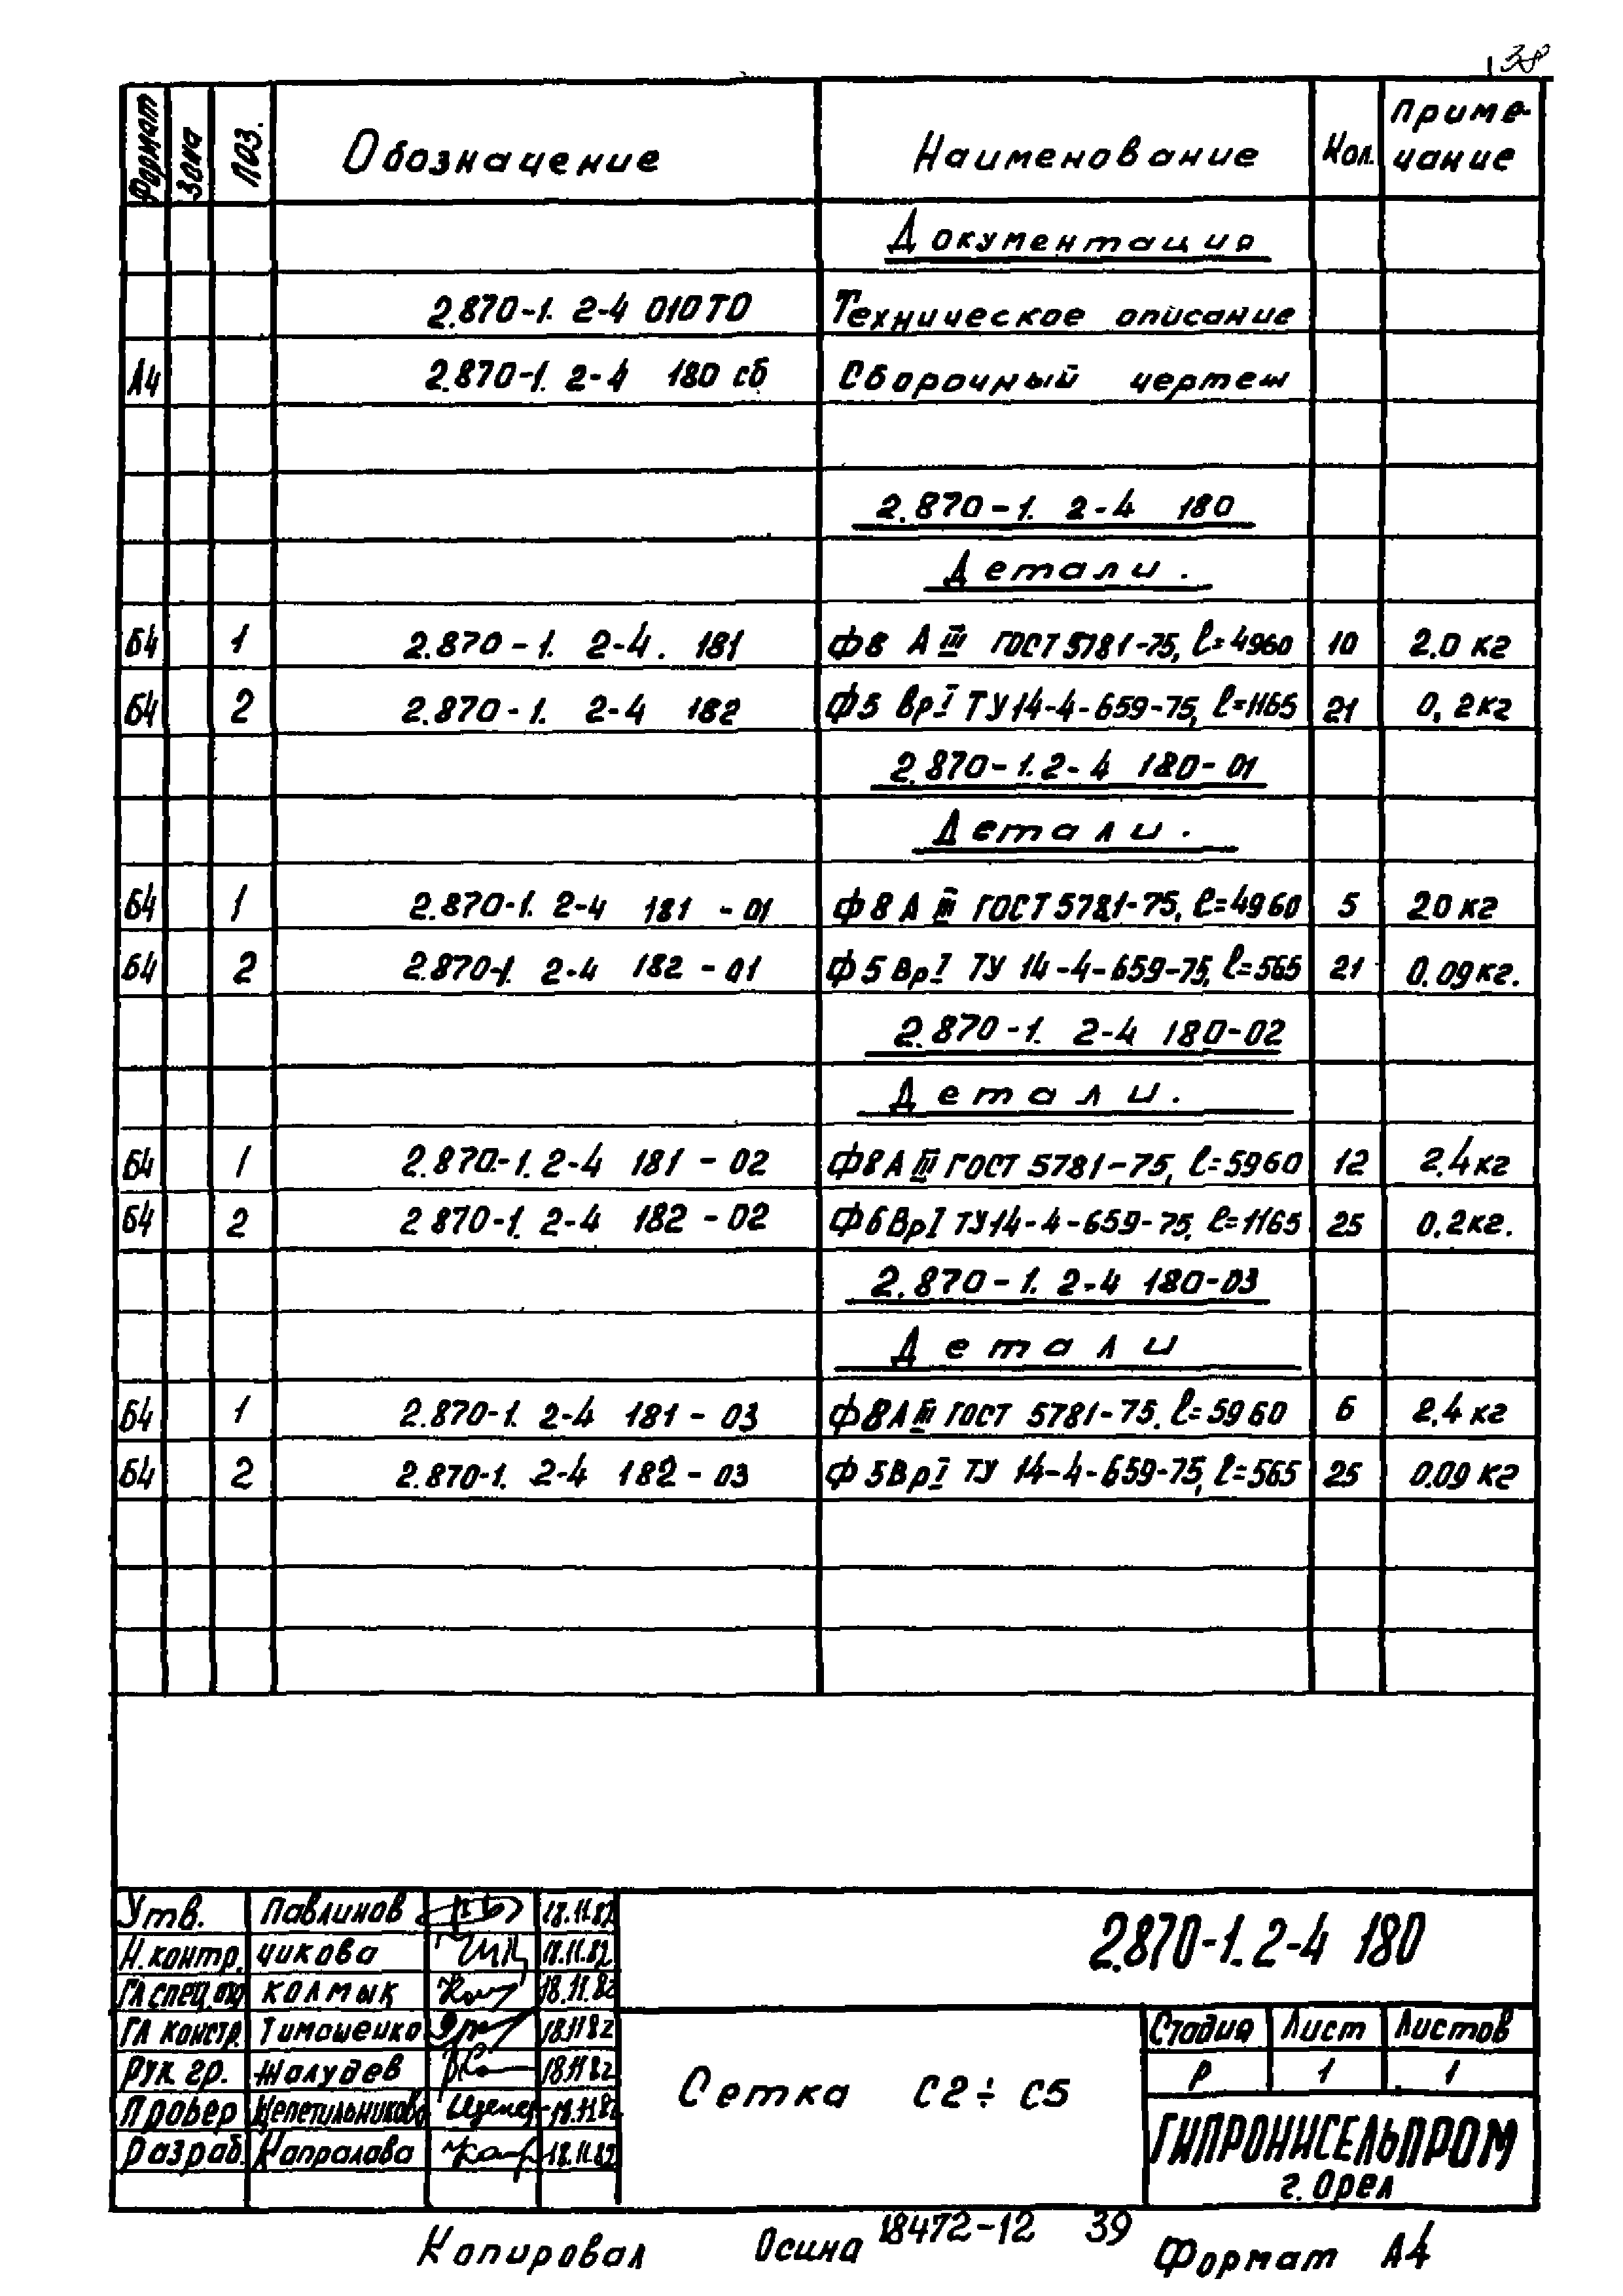 38
Формат Зона Поз. Обозначение Наименование Кол. Приме-
чание
Документация
2.870-1. 2-4 010ТО Техническое описание
А4 2.870-1. 2-4 180 сб Сборочный чертеж
2.870-1. 2-4 180
Детали.
Б4 1 2.870-1. 2-4. 181 Ф8 А III ГОСТ 5781-75, ℓ=4960 10 2.0 кг
Б4 2 2.870-1. 2-4 182 Ф5 ВрI ТУ 14-4-659-75, ℓ=1165 21 0,2кг
2.870-1. 2-4 180-01
Детали.
Б4 1 2.870-1. 2-4 181 -01 Ф8 А III ГОСТ 5781-75, ℓ=4960 5 20 кг
Б4 2 2.870-1. 2-4 182 -01 Ф5 ВрI ТУ 14-4-659-75, ℓ=565 21 0.09кг.
2.870-1. 2-4 180-02
Детали.
Б4 1 2.870-1. 2-4 181 -02 Ф8 А III ГОСТ 5781-75, ℓ=5960 12 2.4кг
Б4 2 2 870-1. 2-4 182 -02 Ф6 ВрI ТУ 14-4-659-75, ℓ=1165 25 0.2кг.
2.870-1. 2-4 180-03
Детали
Б4 1 2.870-1. 2-4 181 -03 Ф8 А III ГОСТ 5781-75. ℓ=5960 6 2.4 кг
Б4 2 2.870-1. 2-4 182 -03 Ф5 ВрI ТУ 14-4-659-75, ℓ=565 25 0.09 кг
Утв. Павлинов 18.11.82
Н.контр. Чикова 18.11.82
Гл спец. Колмык 18.11.82
Гл констр. Тимошенко 18.11 82
Рук гр. Жалудев 18.11 82
Провер 18.11 82
Разраб. Капралова 18.11.82
2.870-1. 2-4 180
Сетка С2÷С5
Стадия Лист Листов
Р 1 1
ГИПРОНИСЕЛЬПРОМ
г. Орел
Копировал Осина 18472-12 39 Формат А4